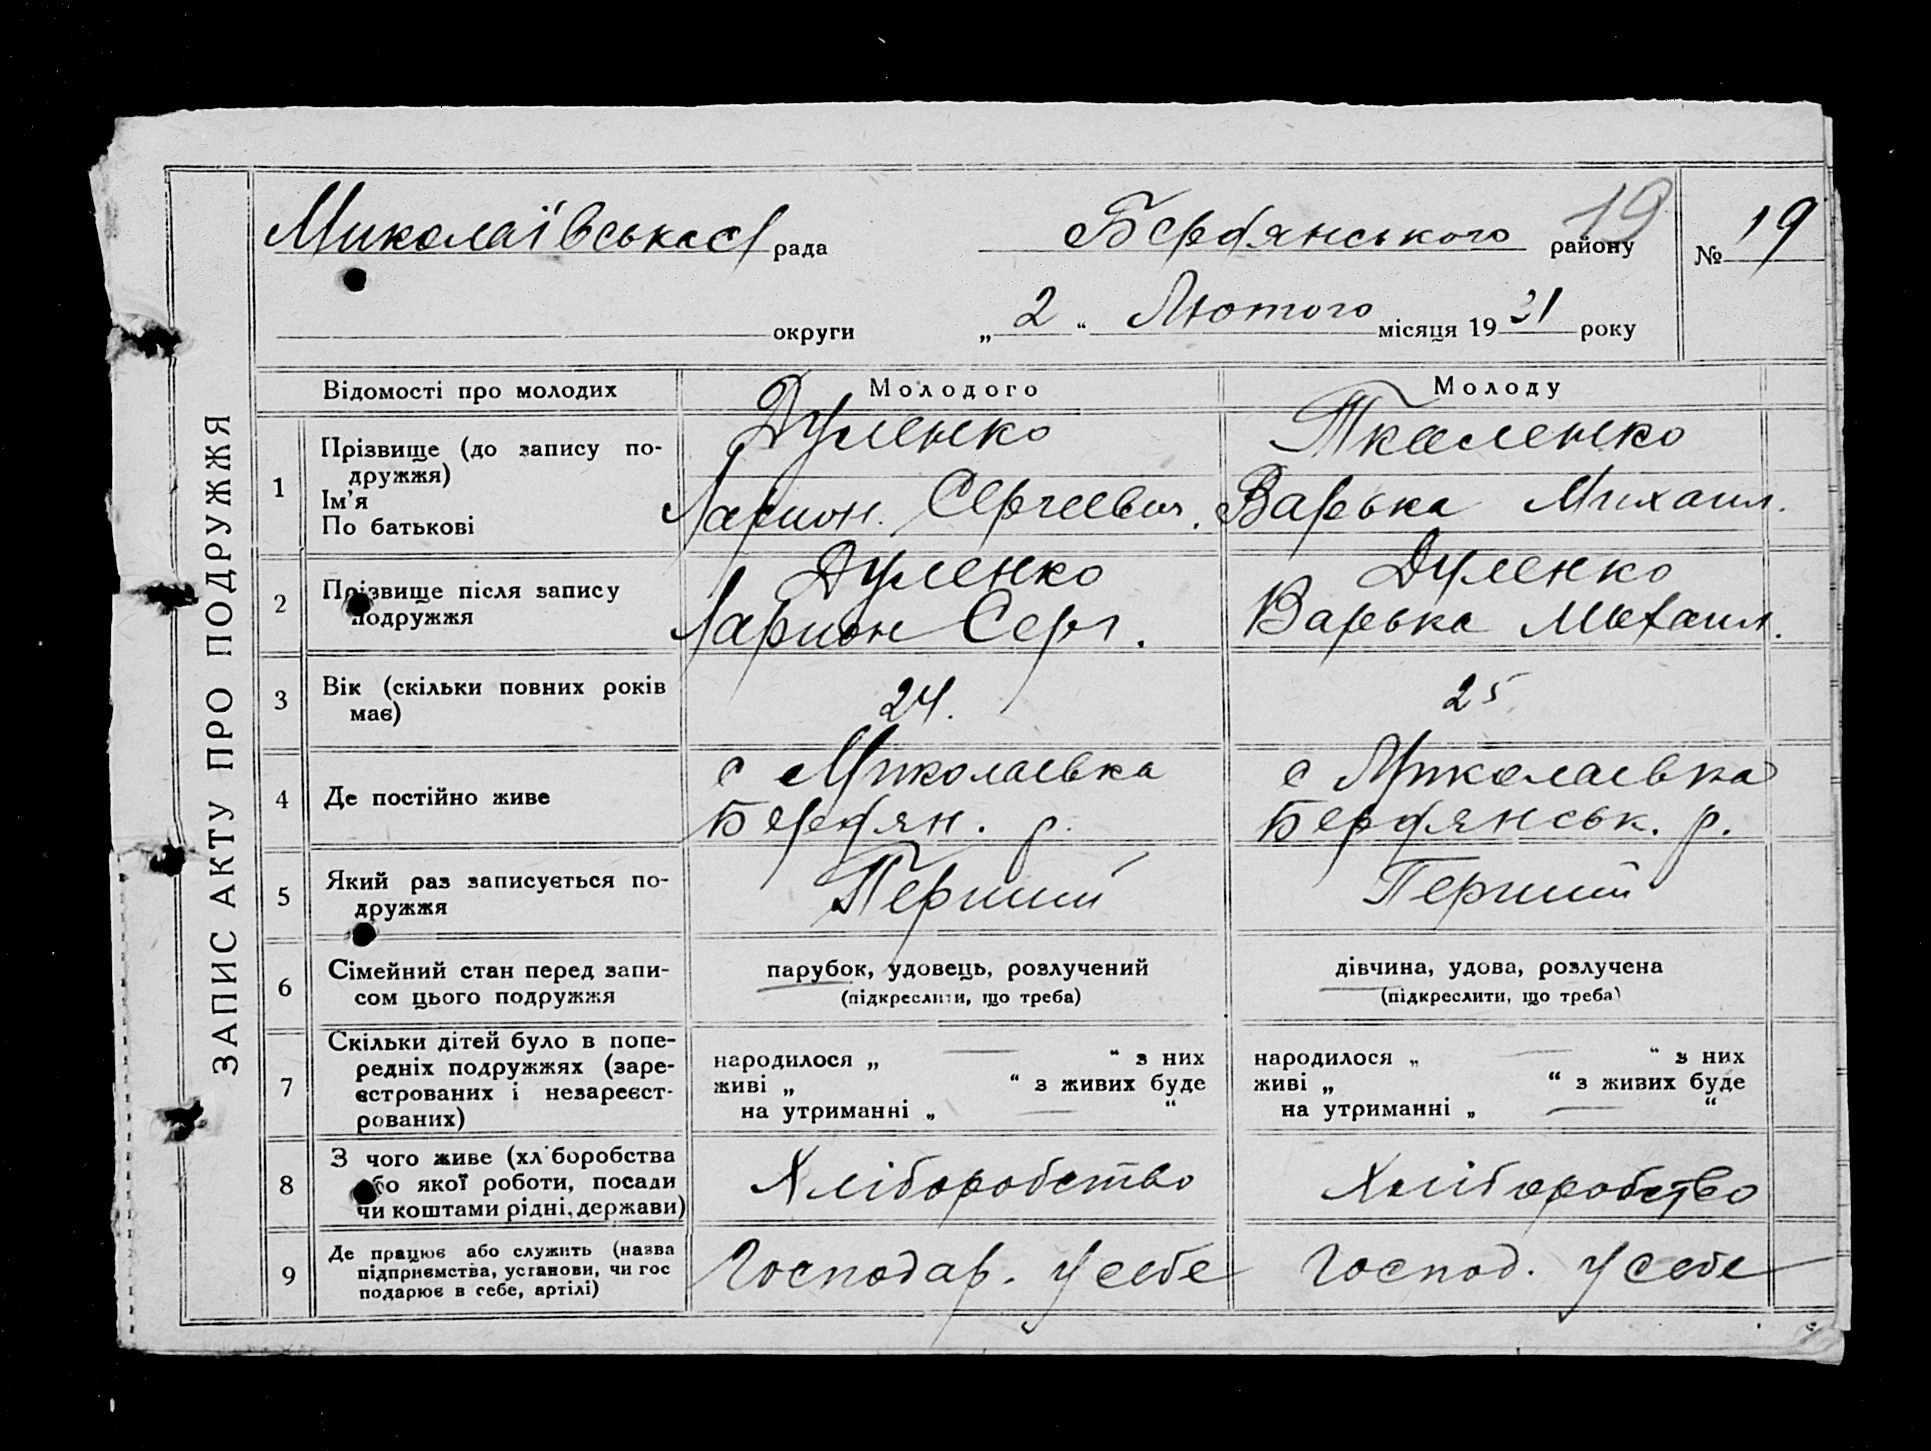 ЗАПИС АКТУ ПРО ПОДРУЖЖЯ
Миколаївська с/рада Бердянського району 19 № 19
округи „ 2 “ Лютого місяця 19 31 року
Відомості про молодих Молодого Молоду
1 Прізвище (до запису по-
дружжя)
Ім’я
По батькові
Дуленко
Ларион. Сергеевич.
Ткаленко
Варька Михаил.
2 Прізвище після запису
подружжя
Дуленко
Ларион Серг.
Дуленко
Варька Михаил.
3 Вік (скільки повних років
має)
24.
25
4 Де постійно живе
с Миколаевка
Бердян. р.
с Миколаевка
Бердянськ. р.
5 Який раз записується по-
дружжя
Перший
Перший
6 Сімейний стан перед запи-
сом цього подружжя
парубок, удовець, розлучений
(підкреслити, що треба)
дівчина, удова, розлучена
(підкреслити, що треба)
7 Скільки дітей було в попе-
редніх подружжях (заре-
єстрованих і незареєст-
рованих)
народилося „ — “ з них
живі „ “ з живих буде
на утриманні „ — “
народилося „ — “ з них
живі „ “ з живих буде
на утриманні „ — “
8 З чого живе (хл боробства
або якої роботи, посади
чи коштами рідні, держави)
Хліборобство
Хліборобство
9 Де працює або служить (назва
підприємства, установи, чи гос
подарює в себе, артілі)
Господар. у себе
Господ. у себе